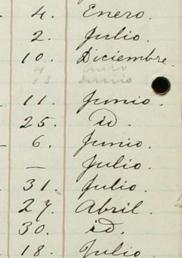 4. Enero.
2. Julio.
10. Diciembre.
11. Junio.
25. id.
6. Junio.
— Julio.
31. Julio.
27. Abril.
30. id.
18. Julio.